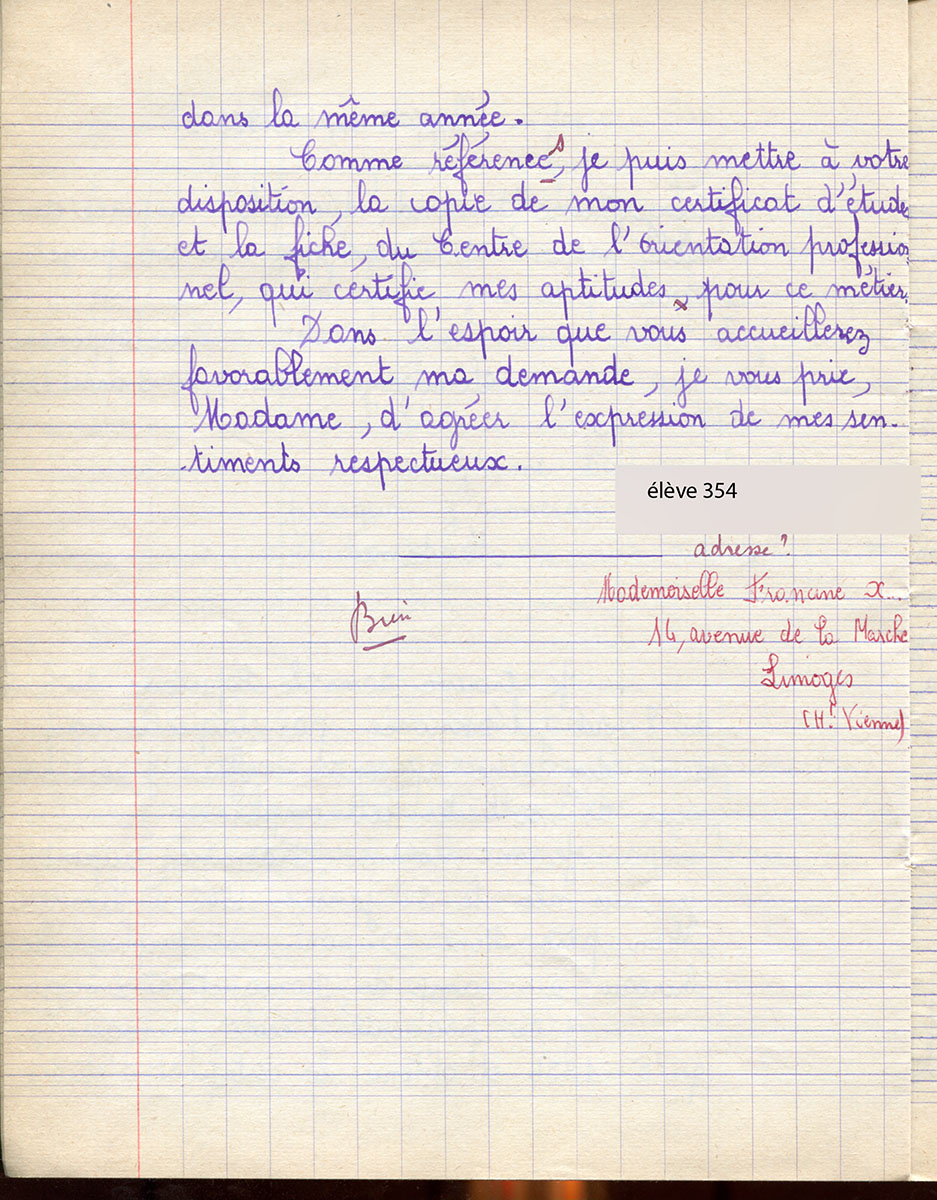 dans la même année.
Comme références, je puis mettre à votre
disposition, la copie de mon certificat d'étude
et la fiche, du Centre de l'Orientation profession
nel, qui certifie mes aptitudes, pour ce métier.
Dans l'espoir que vous accueillerez
favorablement ma demande, je vous prie,
Madame, d'agréer l'expression de mes sen-
-timents respectueux.
élève 354
adresse ?
Mademoiselle Francine X...
Bien
14, avenue de la Marche
Limoges
(Hte Vienne)